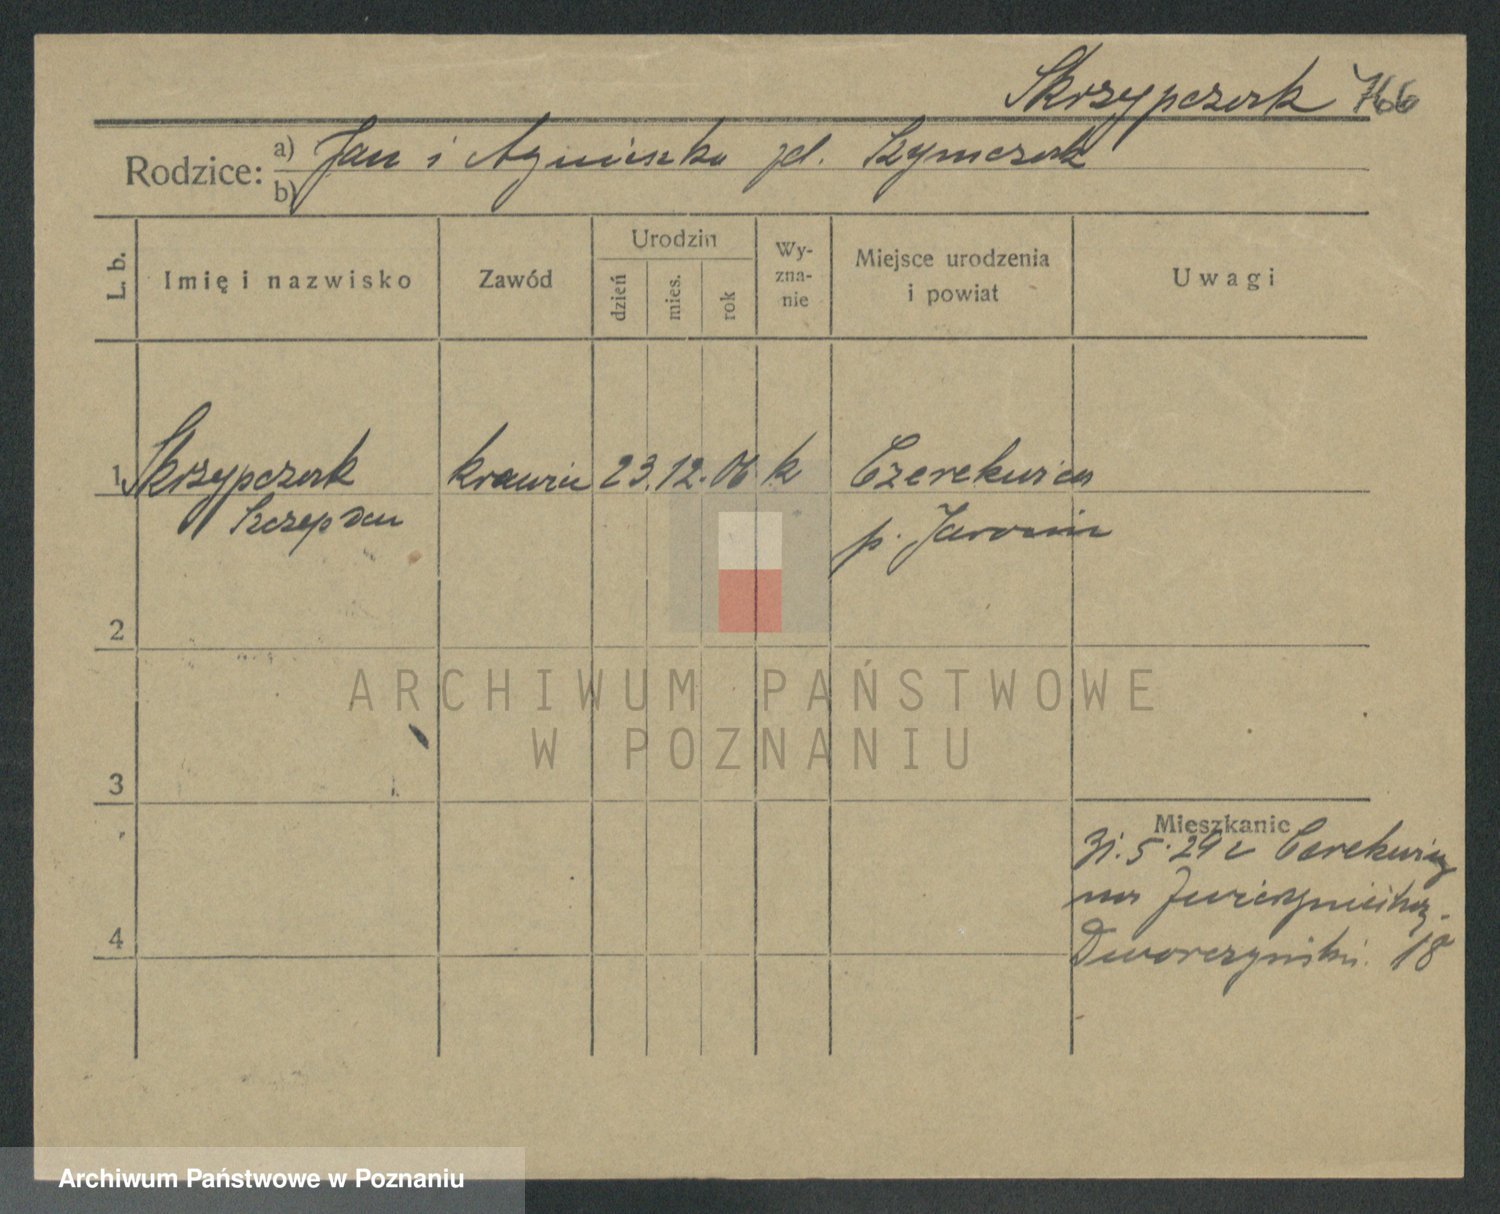 Skrzypczak 766
Rodzice: a) Jan i Agnieszka zd. Szymczak
b)
L. b.
Imię i nazwisko
Zawód
Urodzin
dzień
mies.
rok
Wy-
zna-
nie
Miejsce urodzenia
i powiat
Uwagi
1 Skrzypczak krawiec 23. 12. 06 k Czerekwica
Szczepan p. Jarocin
2
ARCHIWUM PAŃSTWOWE
W POZNANIU
3
Mieszkanie
31. 5. 29 z Cerekwicy
na
4
18
Archiwum Państwowe w Poznaniu